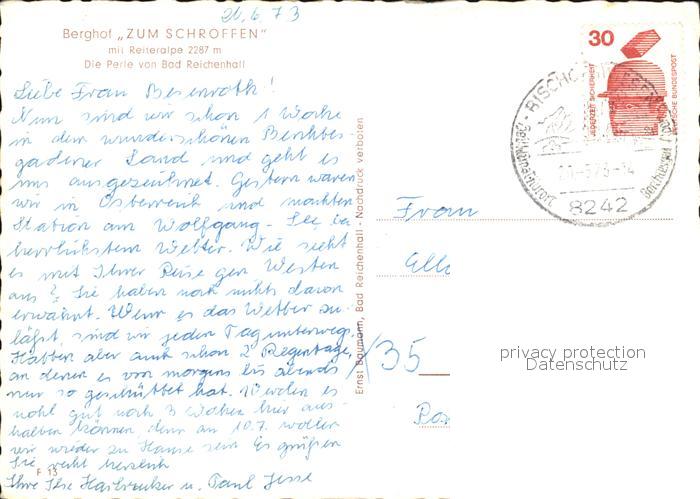 20.6.73
Berghof „ZUM SCHROFFEN"
mit Reiteralpe 2287 m
Die Perle von Bad Reichenhall
Liebe Frau Besenroth!
Nun sind wir schon 1 Woche
in dem wunderschönen Berchtes-
gadener Land und geht es
uns ausgezeichnet. Gestern waren
wir in Österreich und machten
Station am Wolfgang-See bei
herrlichstem Wetter. Wie sieht
es mit Ihrer Reise gen Westen
aus? Sie haben noch nichts davon
erwähnt. Wenn es das Wetter zu-
läßt, sind wir jeden Tag unterwegs.
Hatten aber auch schon 2 Regentage,
an denen es von morgens bis abends
nur so geschüttet hat. Werden es
wohl gut noch 3 Wochen hier aus-
halten können, denn am 10.7. wollen
wir wieder zu Hause sein. Es grüßen
Sie recht herzlich
Ihre Ilse u. Paul Jesse
F 13
Ernst Baumann, Bad Reichenhall - Nachdruck verboten
30
JEDERZEIT SICHERHEIT
DEUTSCHE BUNDESPOST
BISCHOFSWIESEN
8242
Frau
Elli
35
privacy protection
Datenschutz